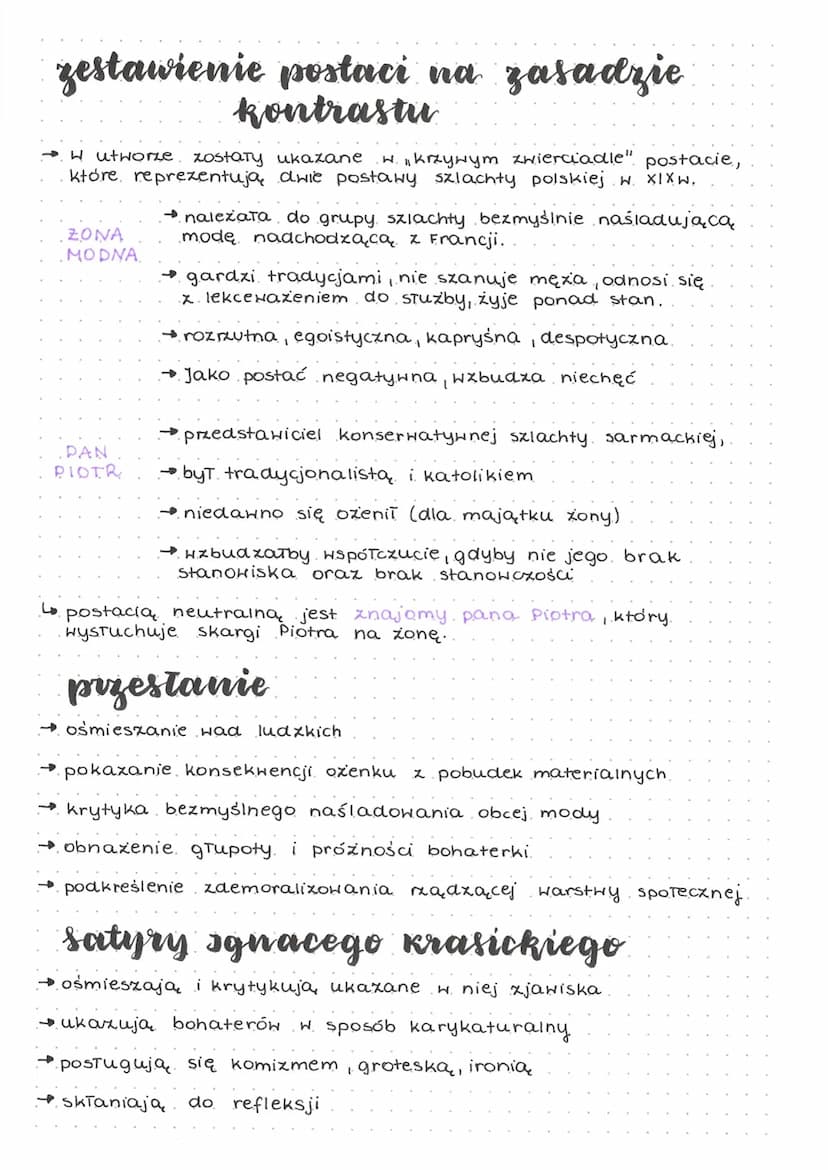 zestawienie postaci na zasadzie
kontrastu
→ W utworze zostały ukazane w „krzywym zwierciadle" postacie,
które reprezentują dwie postawy szlachty polskiej w XIXw.
ŻONA
MODNA
→ należała do grupy szlachty bezmyślnie naśladującą
modę nadchodzącą z Francji.
→ gardzi tradycjami, nie szanuje męża, odnosi się
z lekceważeniem do służby, żyje ponad stan.
→ rozrzutna, egoistyczna, kapryśna, despotyczna
→ Jako postać negatywna, wzbudza niechęć
PAN
PIOTR
→ przedstawiciel konserwatywnej szlachty sarmackiej,
→ był tradycjonalistą i katolikiem
→ niedawno się ożenił (dla majątku żony)
→ wzbudzałby współczucie, gdyby nie jego brak
stanowiska oraz brak stanowczości
↳ postacią neutralną jest znajomy pana Piotra, który
wysłuchuje skargi Piotra na żonę.
przesłanie
→ ośmieszanie wad ludzkich
→ pokazanie konsekwencji ożenku z pobudek materialnych
→ krytyka bezmyślnego naśladowania obcej mody
→ obnażenie głupoty i próżności bohaterki
→ podkreślenie zdemoralizowania rządzącej warstwy społecznej
satyry Ignacego Krasickiego
→ ośmieszają i krytykują ukazane w niej zjawiska
→ ukazują bohaterów w sposób karykaturalny
→ posługują się komizmem, groteską, ironią
→ skłaniają do refleksji